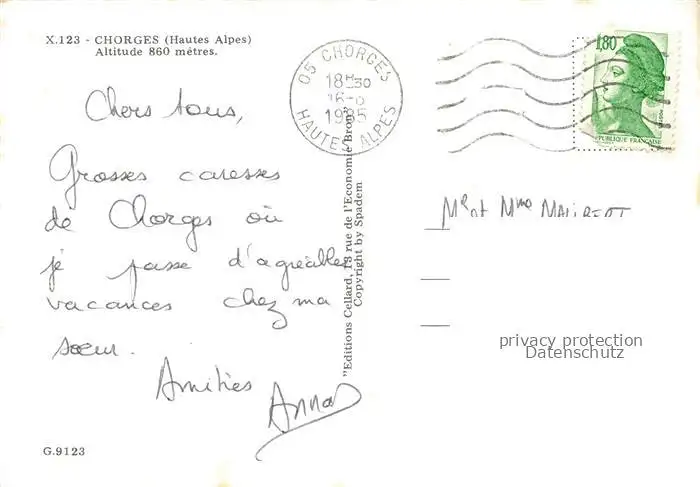 X.123 - CHORGES (Hautes Alpes)
Altitude 860 mètres.
05 CHORGES
18H30
1985
HAUTES ALPES
1,80
RÉPUBLIQUE FRANÇAISE
Chers tous,
Grosses caresses
de Chorges où
je passe d'agréables
vacances chez ma
sœur.
Amitiés
Anna
"Editions Cellard, 18 rue de l'Economie Bron"
Copyright by Spadem
Mr et Mme
privacy protection
Datenschutz
G.9123